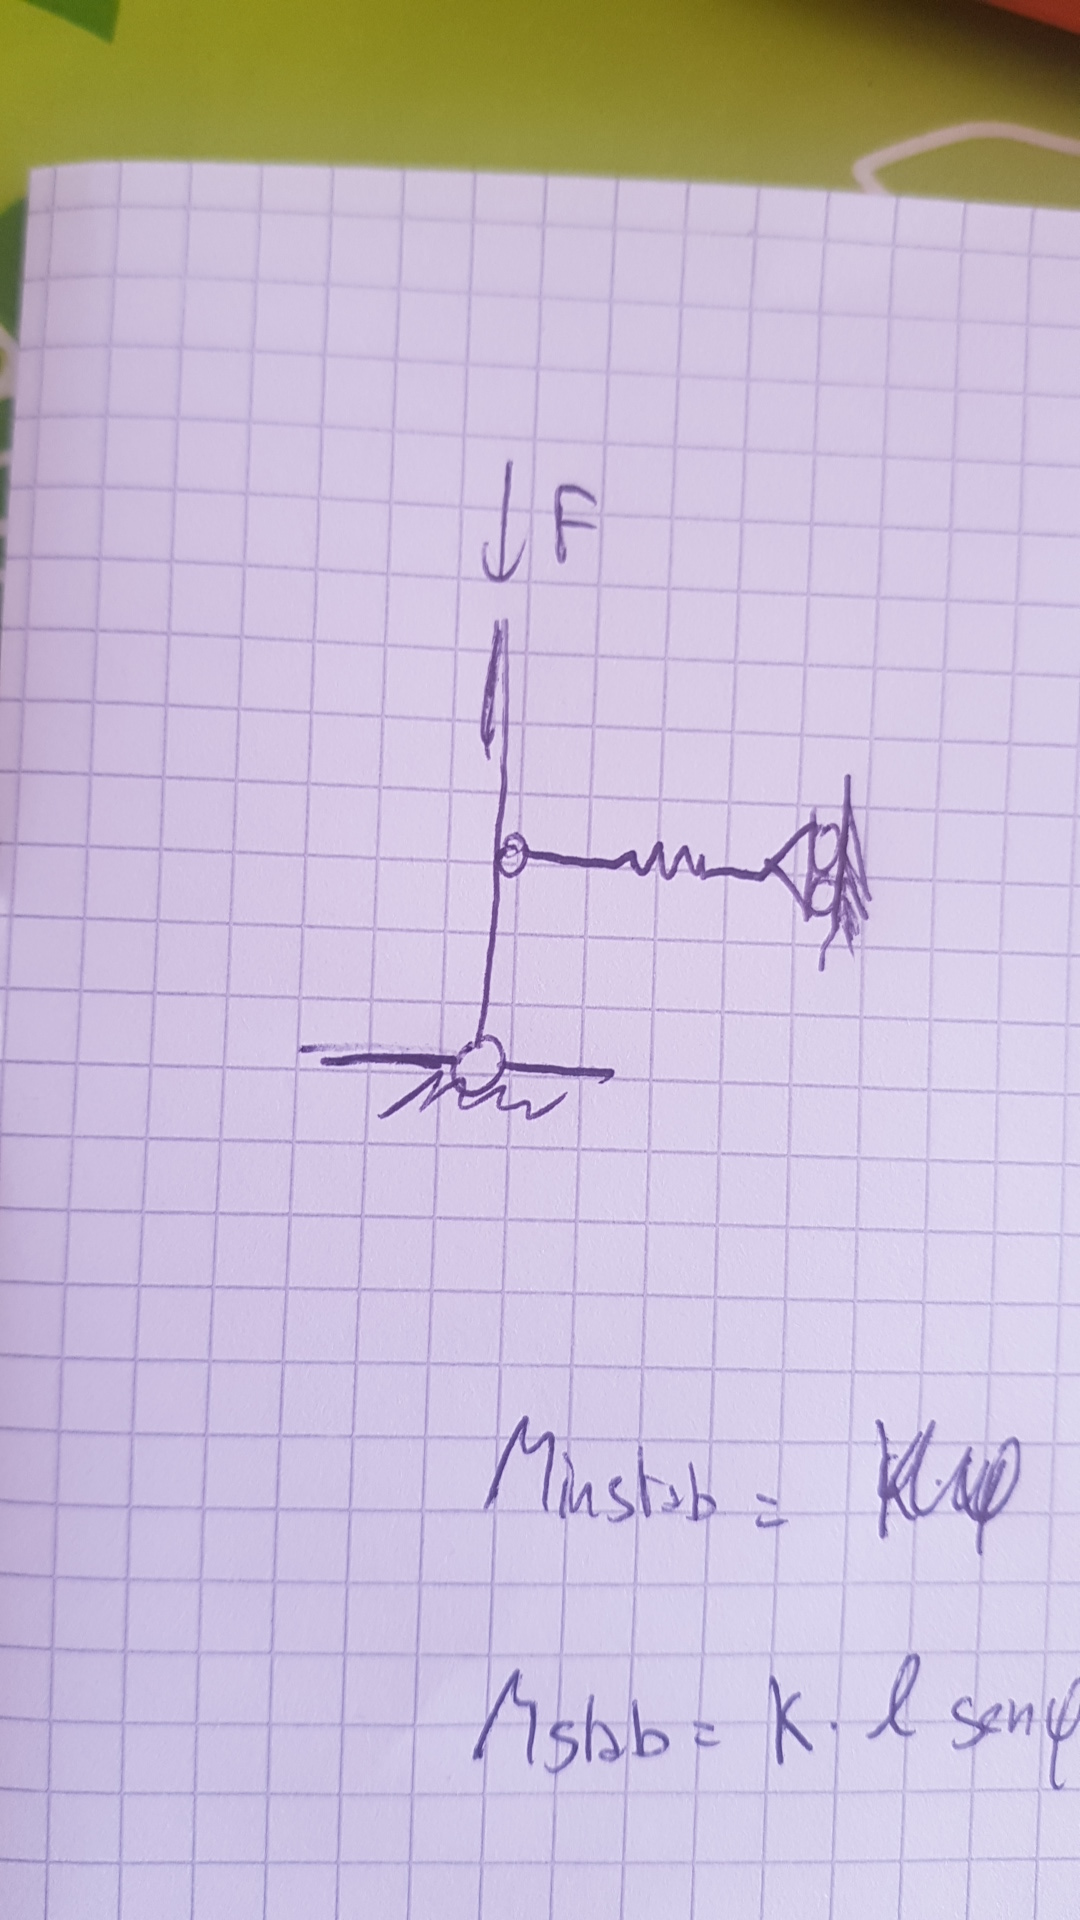 F
Minstab =
Mstab = K. l senφ